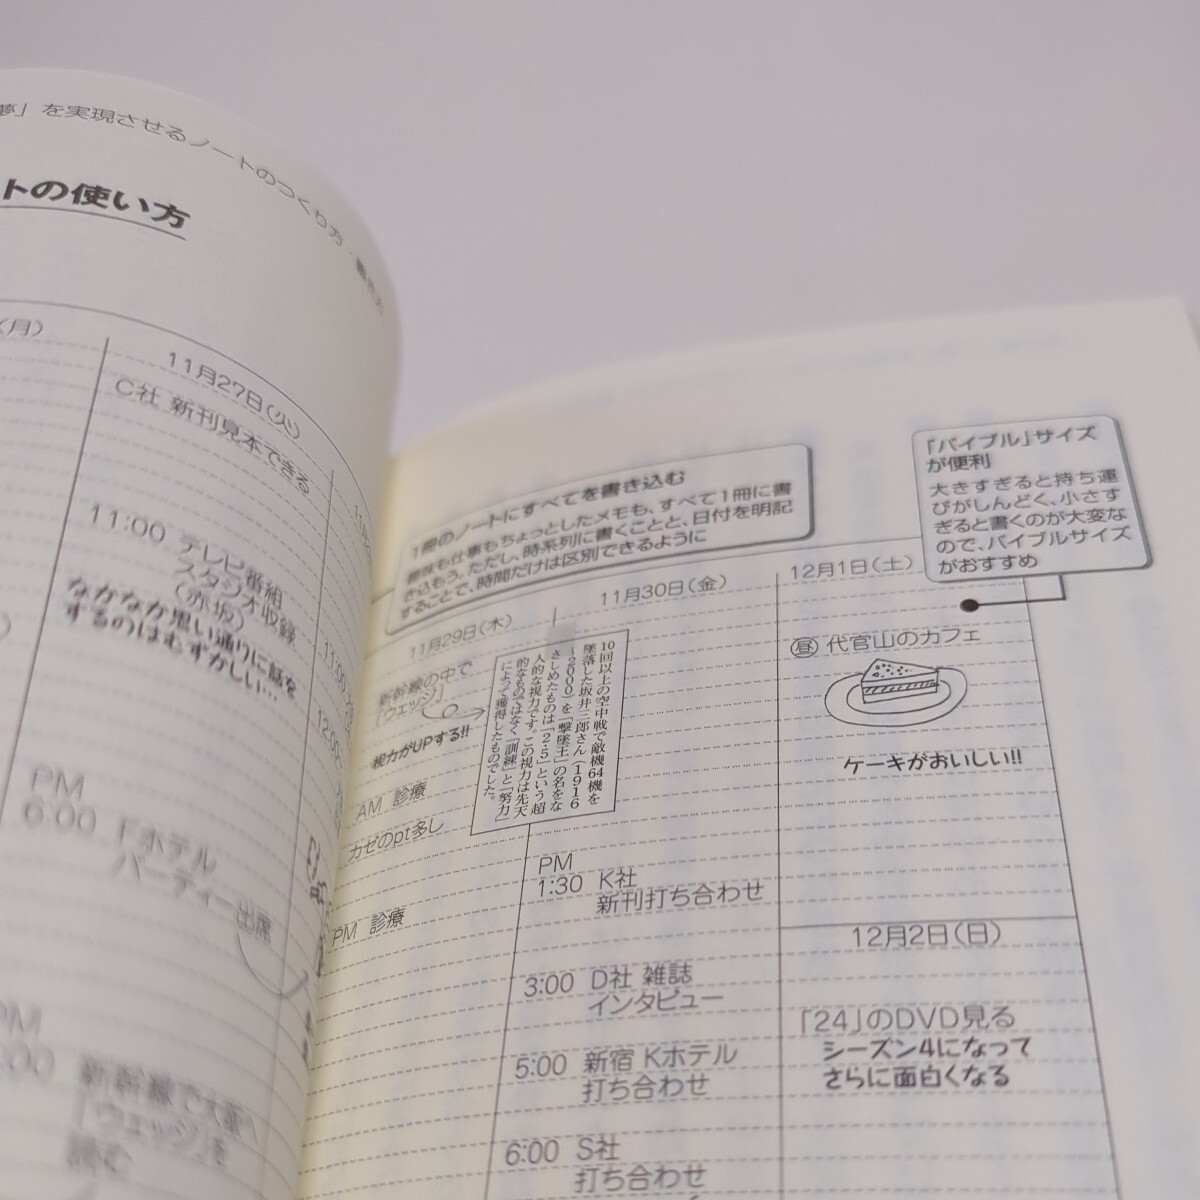 夢」を実現させるノートのつくり方・書き方
トの使い方
(月)
11月27日(火)
C社 新刊見本できる
11:00 テレビ番組
スタジオ収録
(赤坂)
なかなか思い通りに話を
するのはむずかしい…
PM
6:00 Fホテル
パーティー出席
PM
:00 新幹線で大阪へ
「ウェッジ」を
読む
1冊のノートにすべてを書き込む
趣味も仕事もちょっとしたメモも、すべて1冊に書
き込もう。ただし、時系列に書くことと、日付を明記
することで、時間だけは区別できるように
「バイブル」サイズ
が便利
大きすぎると持ち運
びがしんどく、小さす
ぎると書くのが大変な
ので、バイブルサイズ
がおすすめ
11月29日(木)
新幹線の中で
「ウエッジ」
視力がUPする!!
AM 診療
カゼのpt多し
PM 診療
10回以上の空中戦で敵機64機を
墜落した坂井三郎さん(1916
~2000)を「撃墜王」の名をな
さしめたものは「2・5」という超
人的な視力です。この視力は先天
的なものではなく「訓練」と「努力」
によって獲得したものでした。
11月30日(金)
PM
1:30 K社
新刊打ち合わせ
3:00 D社 雑誌
インタビュー
5:00 新宿 Kホテル
打ち合わせ
6:00 S社
打ち合わせ
12月1日(土)
昼 代官山のカフェ
ケーキがおいしい!!
12月2日(日)
「24」のDVD見る
シーズン4になって
さらに面白くなる